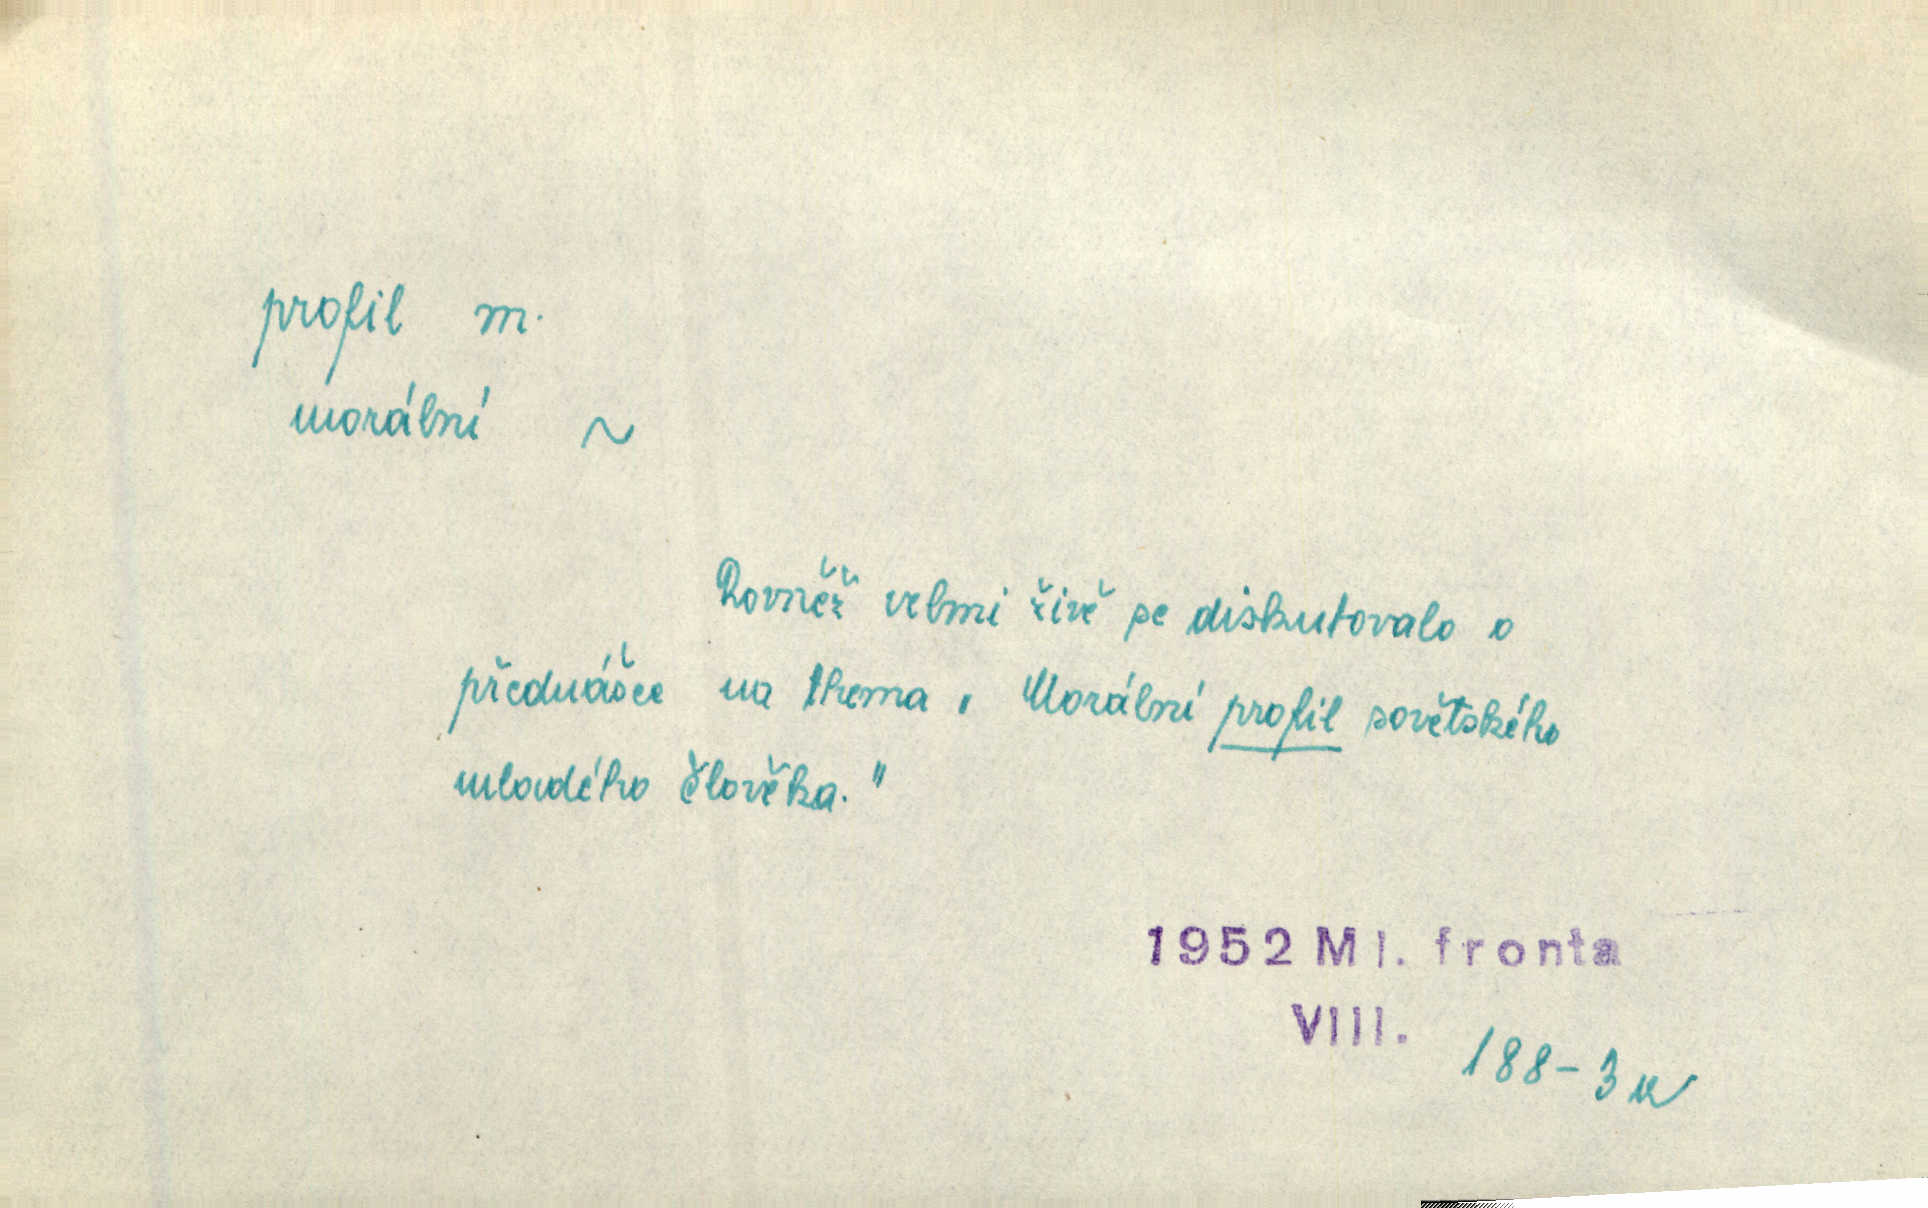 profil m.
morální ~
Rovněž velmi živě se diskutovalo o
přednášce na thema „Morální profil sovětského
mladého člověka."
1952 Ml. fronta
VIII.
188-3